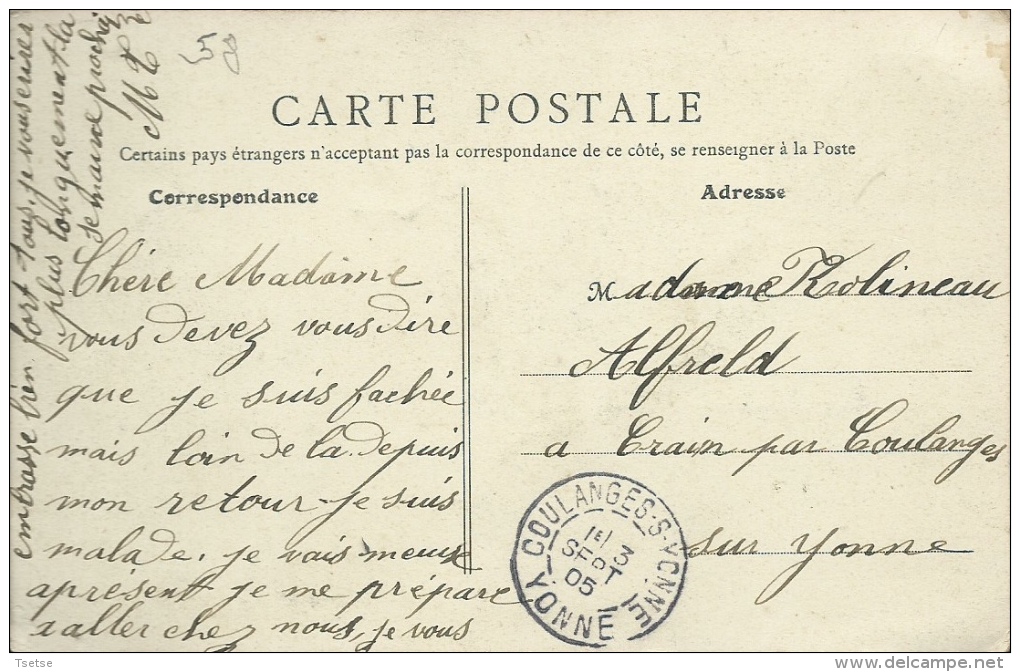 CARTE POSTALE
Certains pays étrangers n'acceptant pas la correspondance de ce côté, se renseigner à la Poste
Correspondance
Adresse
Chére Madame
vous devez vous dire
que je suis fachée
mais loin de la depuis
mon retour je suis
malade. je vais mieux
aprésent je me prépare
a aller chez nous, je vous
embrasse bien fort tous, je vous
plus longuement la
semaine prochaine
Madame Rolineau
Alfreld
a Crain par Coulanges
sur Yonne
COULANGES-S-YONNE
1E 3
SEPT
05
YONNE
50
Tsetse
www.delcampe.net